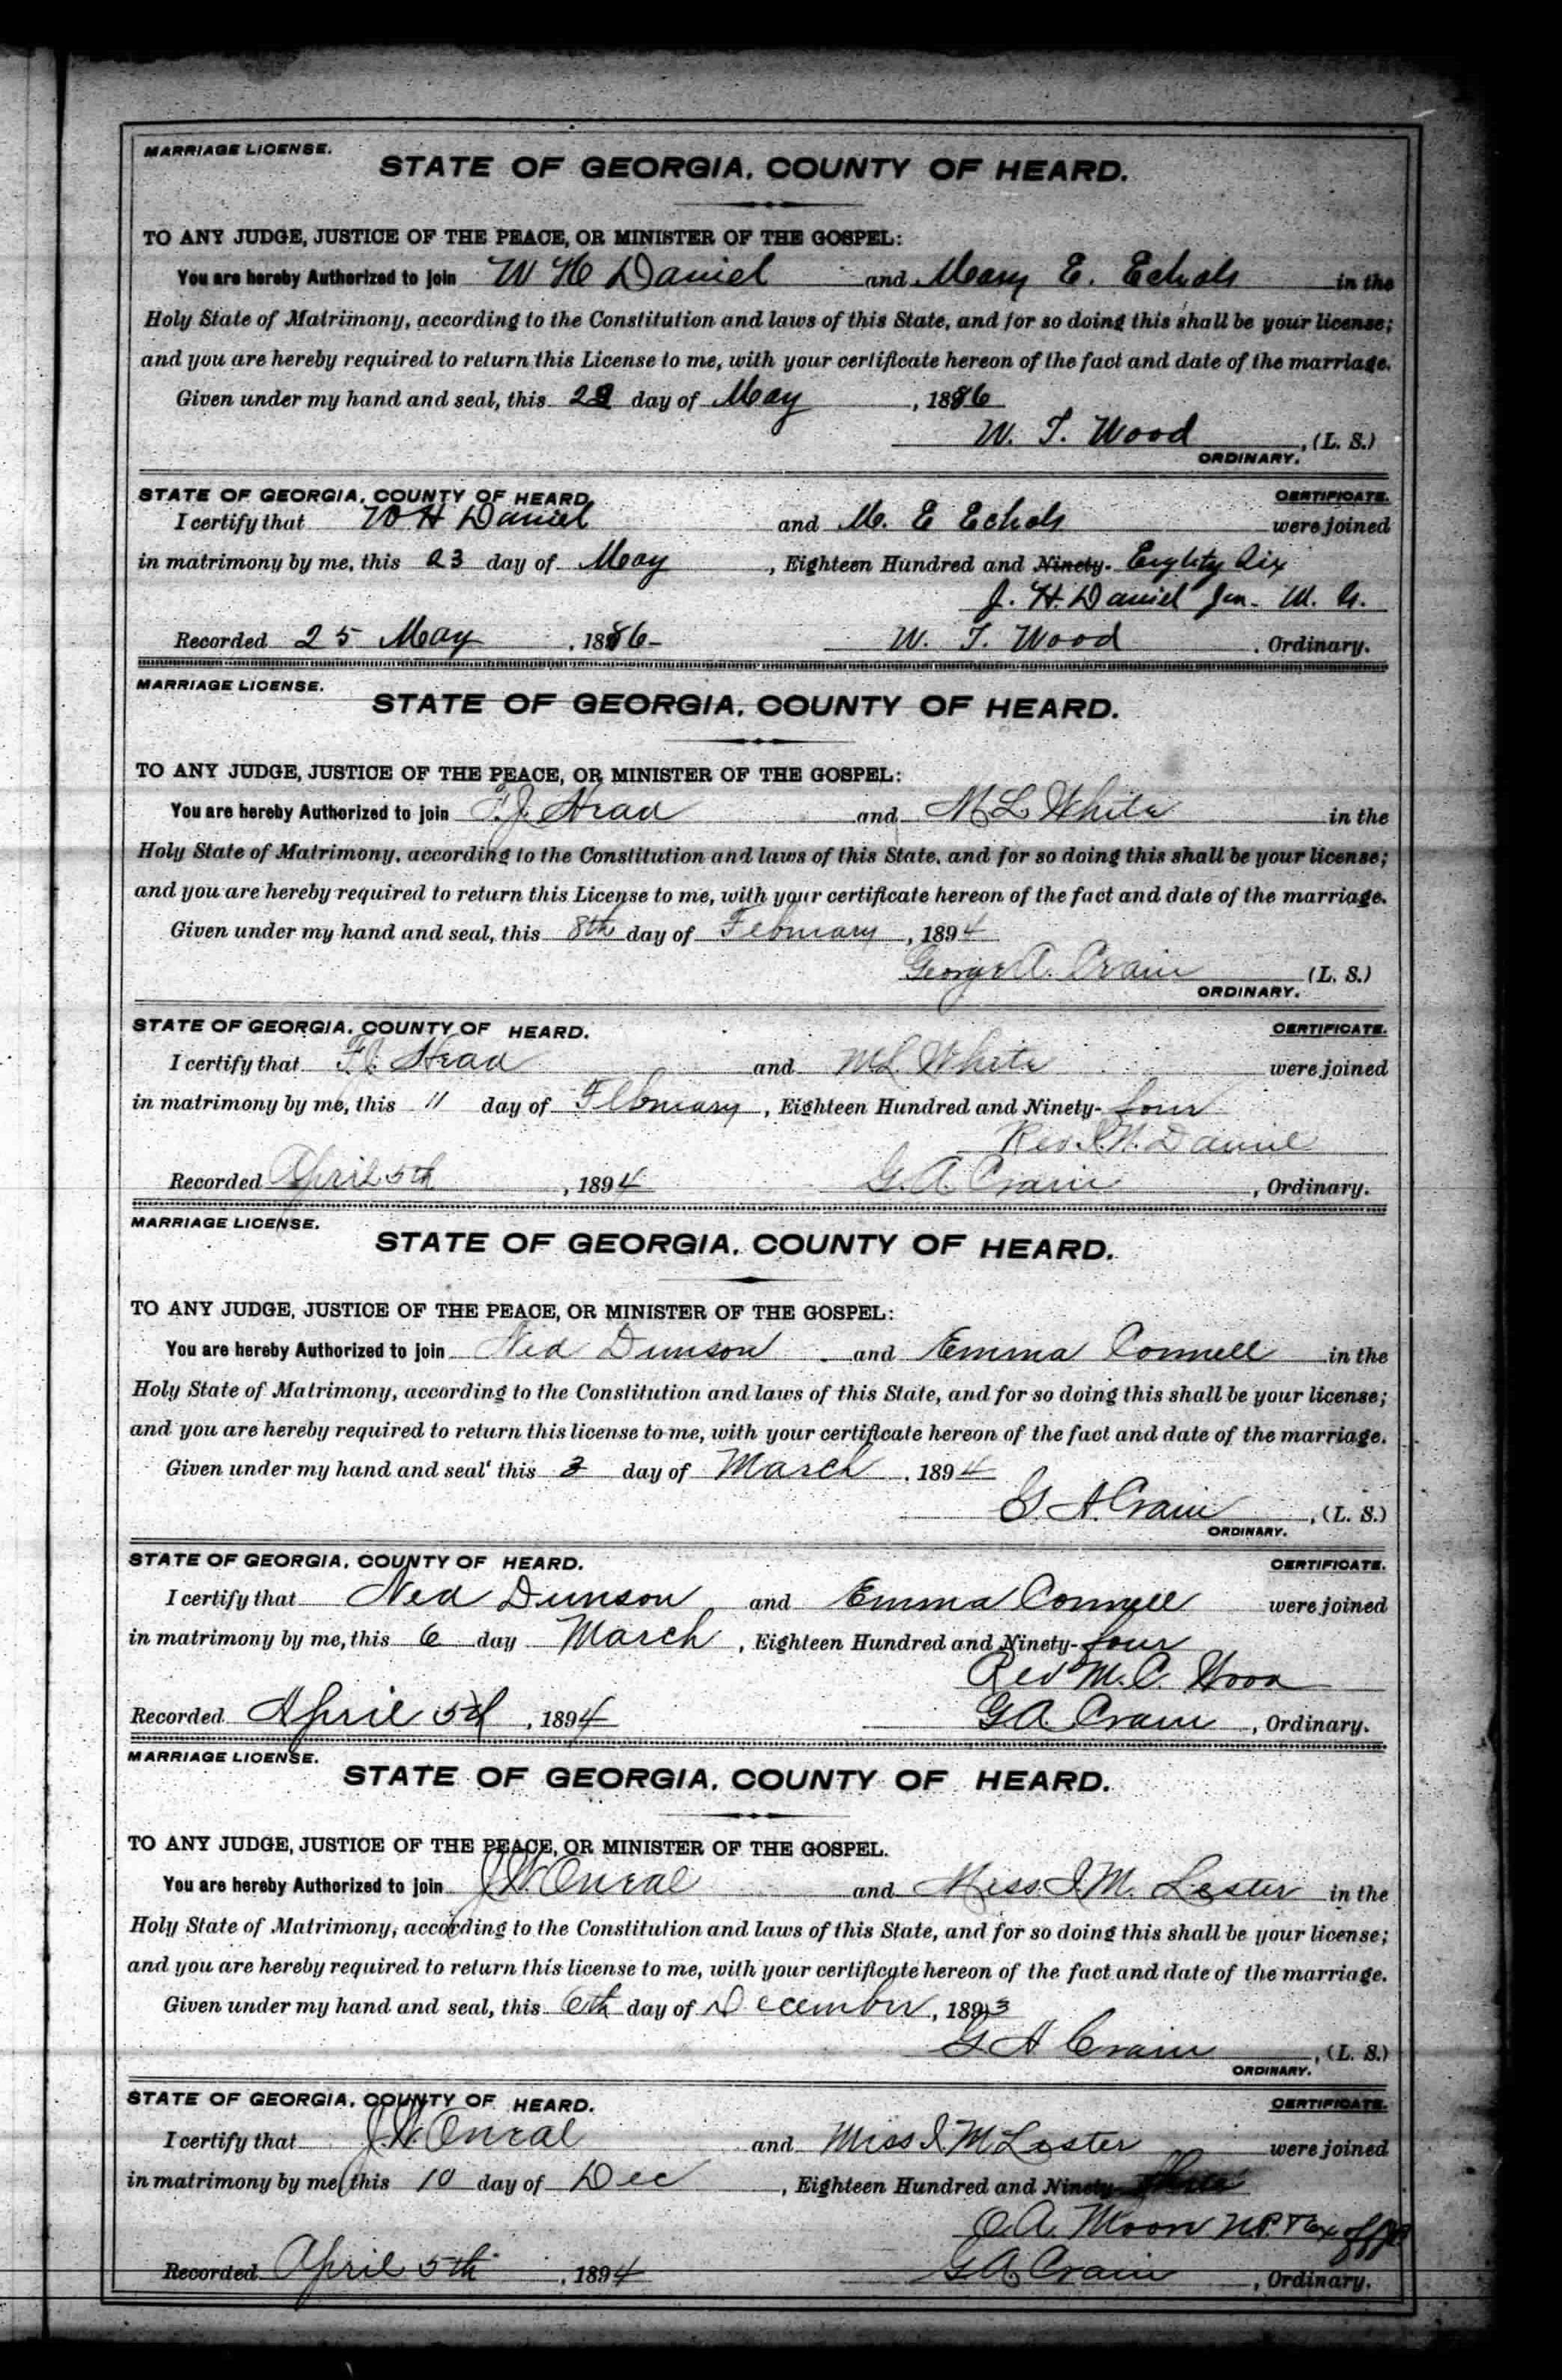 MARRIAGE LICENSE.
STATE OF GEORGIA, COUNTY OF HEARD.
TO ANY JUDGE, JUSTICE OF THE PEACE, OR MINISTER OF THE GOSPEL:
You are hereby Authorized to join W H Daniel and Mary E. Echols in the
Holy State of Matrimony, according to the Constitution and laws of this State, and for so doing this shall be your license;
and you are hereby required to return this License to me, with your certificate hereon of the fact and date of the marriage.
Given under my hand and seal, this day of May, 1886
W. T. Wood, (L. S.)
ORDINARY.
STATE OF GEORGIA, COUNTY OF HEARD. CERTIFICATE.
I certify that W H Daniel and M. E Echols were joined
in matrimony by me, this 23 day of May, Eighteen Hundred and Ninety- Eighty Six
J. H. Daniel Jun. M. G.
Recorded 25 May, 1886- W. T. Wood, Ordinary.
MARRIAGE LICENSE.
STATE OF GEORGIA, COUNTY OF HEARD.
TO ANY JUDGE, JUSTICE OF THE PEACE, OR MINISTER OF THE GOSPEL:
You are hereby Authorized to join F. J. Head and M L White in the
Holy State of Matrimony, according to the Constitution and laws of this State, and for so doing this shall be your license;
and you are hereby required to return this License to me, with your certificate hereon of the fact and date of the marriage.
Given under my hand and seal, this 8th day of February, 1894
George A. Crain (L. S.)
ORDINARY.
STATE OF GEORGIA, COUNTY OF HEARD. CERTIFICATE.
I certify that F. J. Head and M L White were joined
in matrimony by me, this 11 day of February, Eighteen Hundred and Ninety- four
Rev. Daniel
Recorded April 5th, 1894 G. A. Crain, Ordinary.
MARRIAGE LICENSE.
STATE OF GEORGIA, COUNTY OF HEARD.
TO ANY JUDGE, JUSTICE OF THE PEACE, OR MINISTER OF THE GOSPEL:
You are hereby Authorized to join Ned Dunson and Emma Connell in the
Holy State of Matrimony, according to the Constitution and laws of this State, and for so doing this shall be your license;
and you are hereby required to return this license to me, with your certificate hereon of the fact and date of the marriage.
Given under my hand and seal' this 3 day of March, 1894
G. A. Crain, (L. S.)
ORDINARY.
STATE OF GEORGIA, COUNTY OF HEARD. CERTIFICATE.
I certify that Ned Dunson and Emma Connell were joined
in matrimony by me, this 6 day March, Eighteen Hundred and Ninety- four
Rev M. C. Wood
Recorded April 5th, 1894 G A. Crain, Ordinary.
MARRIAGE LICENSE.
STATE OF GEORGIA, COUNTY OF HEARD.
TO ANY JUDGE, JUSTICE OF THE PEACE, OR MINISTER OF THE GOSPEL.
You are hereby Authorized to join J. W. Oneal and Miss. I. M. Lester in the
Holy State of Matrimony, according to the Constitution and laws of this State, and for so doing this shall be your license;
and you are hereby required to return this license to me, with your certificate hereon of the fact and date of the marriage.
Given under my hand and seal, this 6th day of December, 1893
G A Crain, (L. S.)
ORDINARY.
STATE OF GEORGIA, COUNTY OF HEARD. CERTIFICATE.
I certify that J. W. Oneal and Miss I M Lester were joined
in matrimony by me, this 10 day of Dec, Eighteen Hundred and Ninety- three
O. A. Moon N.P. & Ex off
Recorded April 5th, 1894 G A Crain, Ordinary.